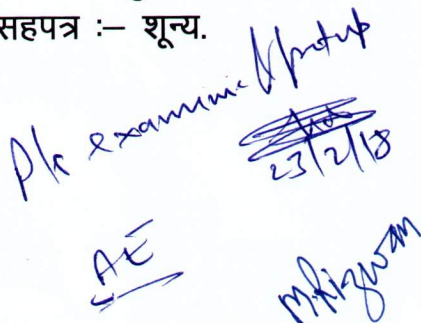 सहपत्र :– शून्य.
Plz examine & putup
23/2/18
AE
M.Rizwan